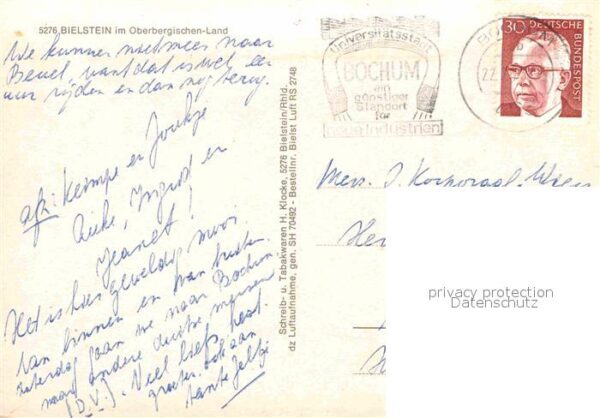 5276 BIELSTEIN im Oberbergischen-Land
We kunnen niet meer naar
Beuel, want dat is wel een
uur rijden en dan nog terug.
afz: Kempe en Joukje
Aieke, Ingrid en
Jeanet!
Het is hier geweldig mooi
van binnen en van buiten.
Zaterdag gaan we naar Bochum
naar andere duitse mensen
(D.V.). Veel liefs hoor.
groeten ook aan
tante Jeltje
Schreib- u. Tabakwaren H. Klocke, 5276 Bielstein/Rhld.
dz Luftaufnahme, gen. SH 70492 - Bestellnr. Bielst Luft RS 2748
Universitätsstadt
BOCHUM
ein
günstiger
Standort
für
neue Industrien
BOCHUM
22.
30
DEUTSCHE
BUNDESPOST
Mevr. J.
privacy protection
Datenschutz